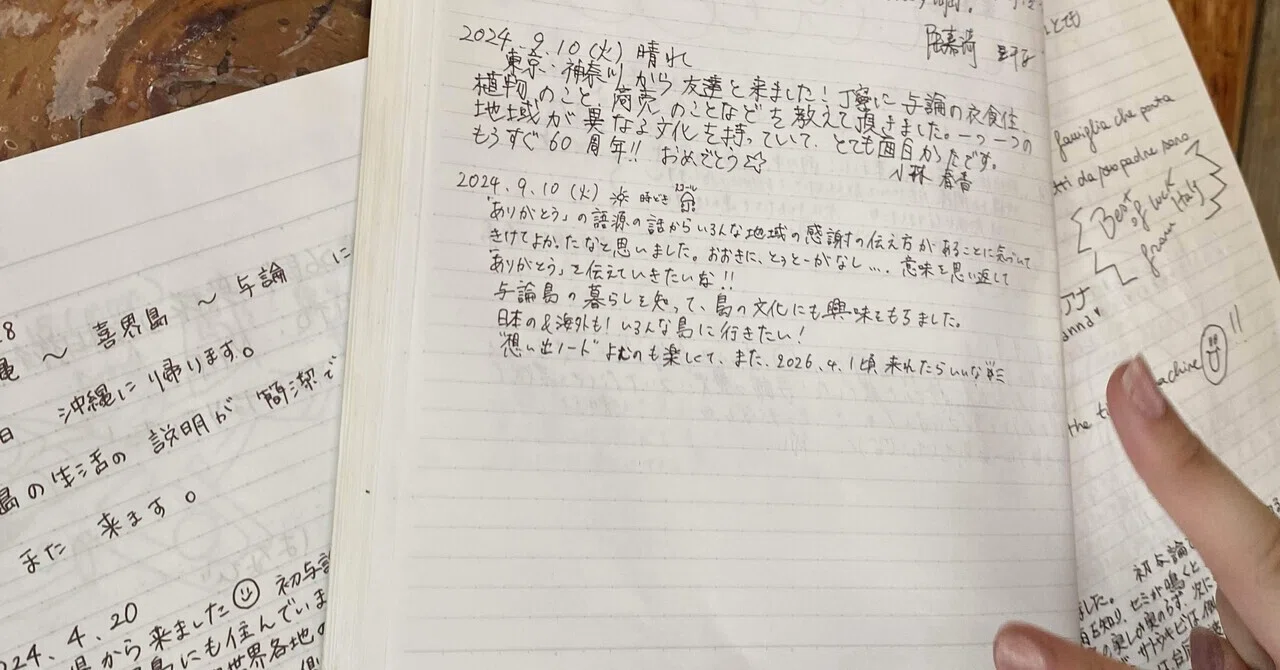 2024.9.10(火)晴れ
東京・神奈川から友達と来ました！丁寧に与論の衣食住、
植物のこと、商売のことなどを教えて頂きました。一つ一つの
地域が異なる文化を持っていて、とても面白かったです。
もうすぐ60周年!! おめでとう☆
小林
2024.9.10(火) 時どき
「ありがとう」の語源の話からいろんな地域の感謝の伝え方があることに気づいて
きけてよかったなと思いました。おおきに、とぅとぅがなし…. 意味を思い返して
「ありがとう」を伝えていきたいな!!
与論島の暮らしを知って、島の文化にも興味をもちました。
日本の&海外も！いろんな島に行きたい！
"想い出ノート"よむのも楽しくて、また、2026.4.1頃 来れたらいいな
28
～ 喜界島 ～ 与論 に
沖縄に帰ります。
島の生活の 説明が 簡潔で
また 来ます。
024.4.20
県から来ました 初与論
島にも住んでいま
世界各地の
とても
famiglia che porta
tti da propadre sono
Best
of luck
from Italy
アナ
the ti machine !!
初与論
ました。セミが鳴くと
サトウキビは